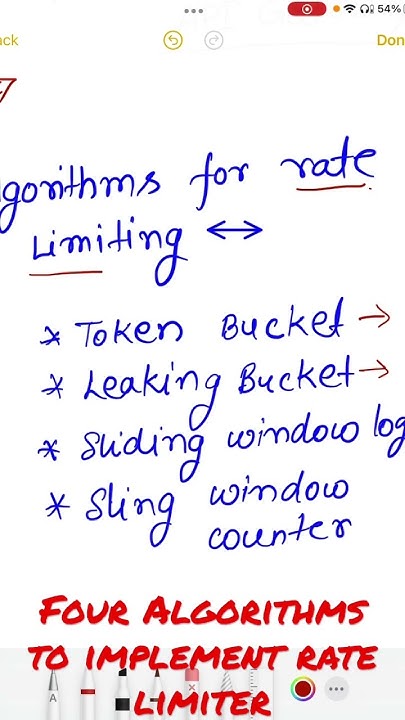 ack
Don
54%
gorithms for rate
Limiting ↔
* Token Bucket →
* Leaking Bucket →
* Sliding window log
* Sling window
counter
Four Algorithms
to implement rate
limiter
A